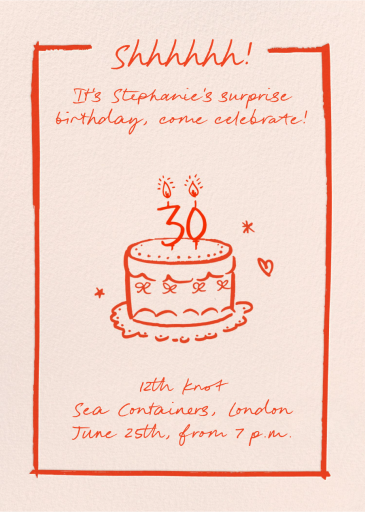 Shhhhhh!
It's Stephanie's surprise
birthday, come celebrate!
30
12th Knot
Sea Containers, London
June 25th, from 7 p.m.